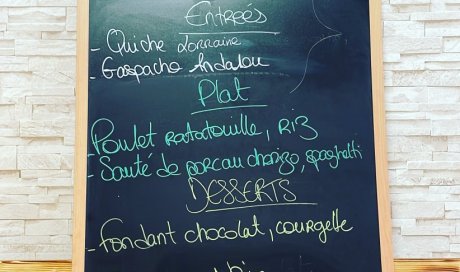 Entrées
- Quiche Lorraine
- Gaspacho Andalou
Plat
- Poulet ratatouille, Riz
- Sauté de porc au chorizo, spaghetti
DESSERTS
- Fondant chocolat, courgette